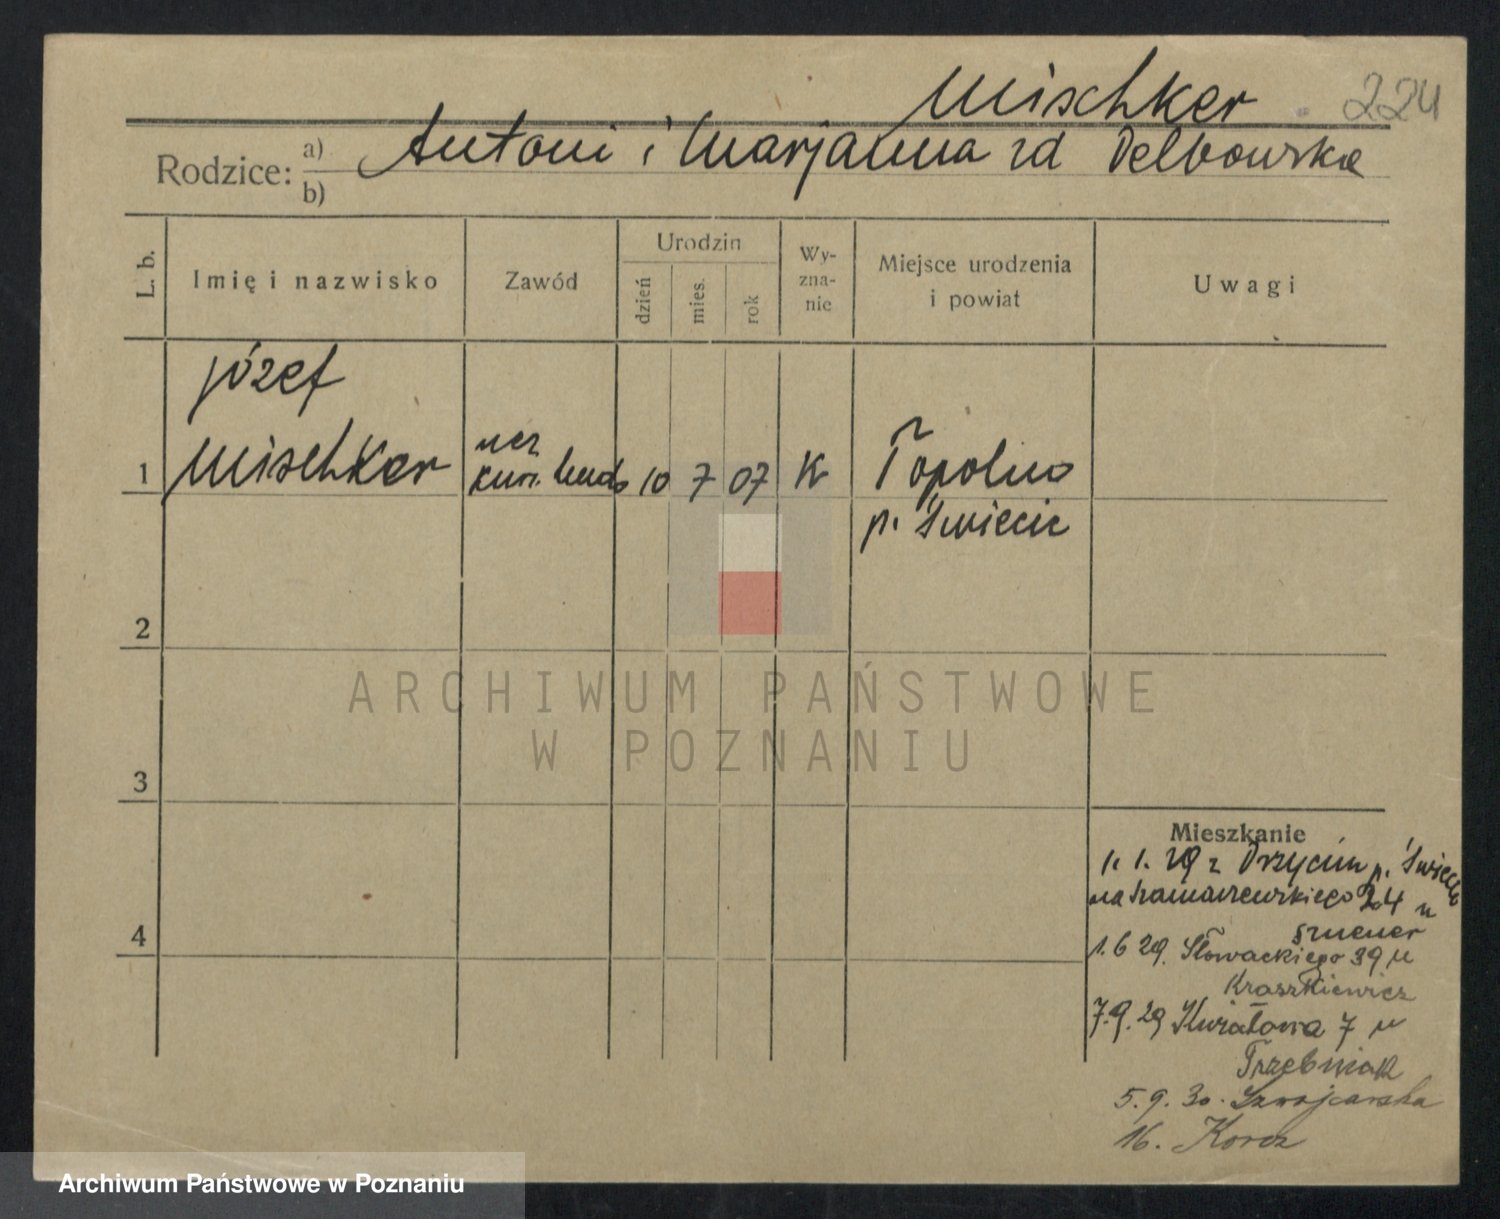 Mischker 224
Rodzice: a) Antoni i Marjanna zd Delbowska
b)
L. b.
Imię i nazwisko
Zawód
Urodzin
dzień
mies.
rok
Wy-
zna-
nie
Miejsce urodzenia
i powiat
Uwagi
Józef
1 Mischker
ucz
10 7 07 K Topolno
p. Świecie
2
ARCHIWUM PAŃSTWOWE
W POZNANIU
3
Mieszkanie
1. 1. 29 z Drzycim p. Świecie
na Szamarzewskiego 24 u
1.6 29. Słowackiego 39 u
Kraszkiewicz
7.9.29 Kwiatowa 7 u
Trzebniak
4
5.9.30. Szwajcarska
16. Korcz
Archiwum Państwowe w Poznaniu